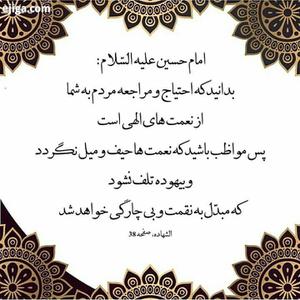 ejiga.com
امام حسین علیه السّلام:
بدانید که احتیاج و مراجعه مردم به شما
از نعمت های الهی است
پس مواظب باشید که نعمت ها حیف و میل نگردد
و بیهوده تلف نشود
که مبدّل به نقمت و بی چارگی خواهد شد
الشهاده، صفحه 38